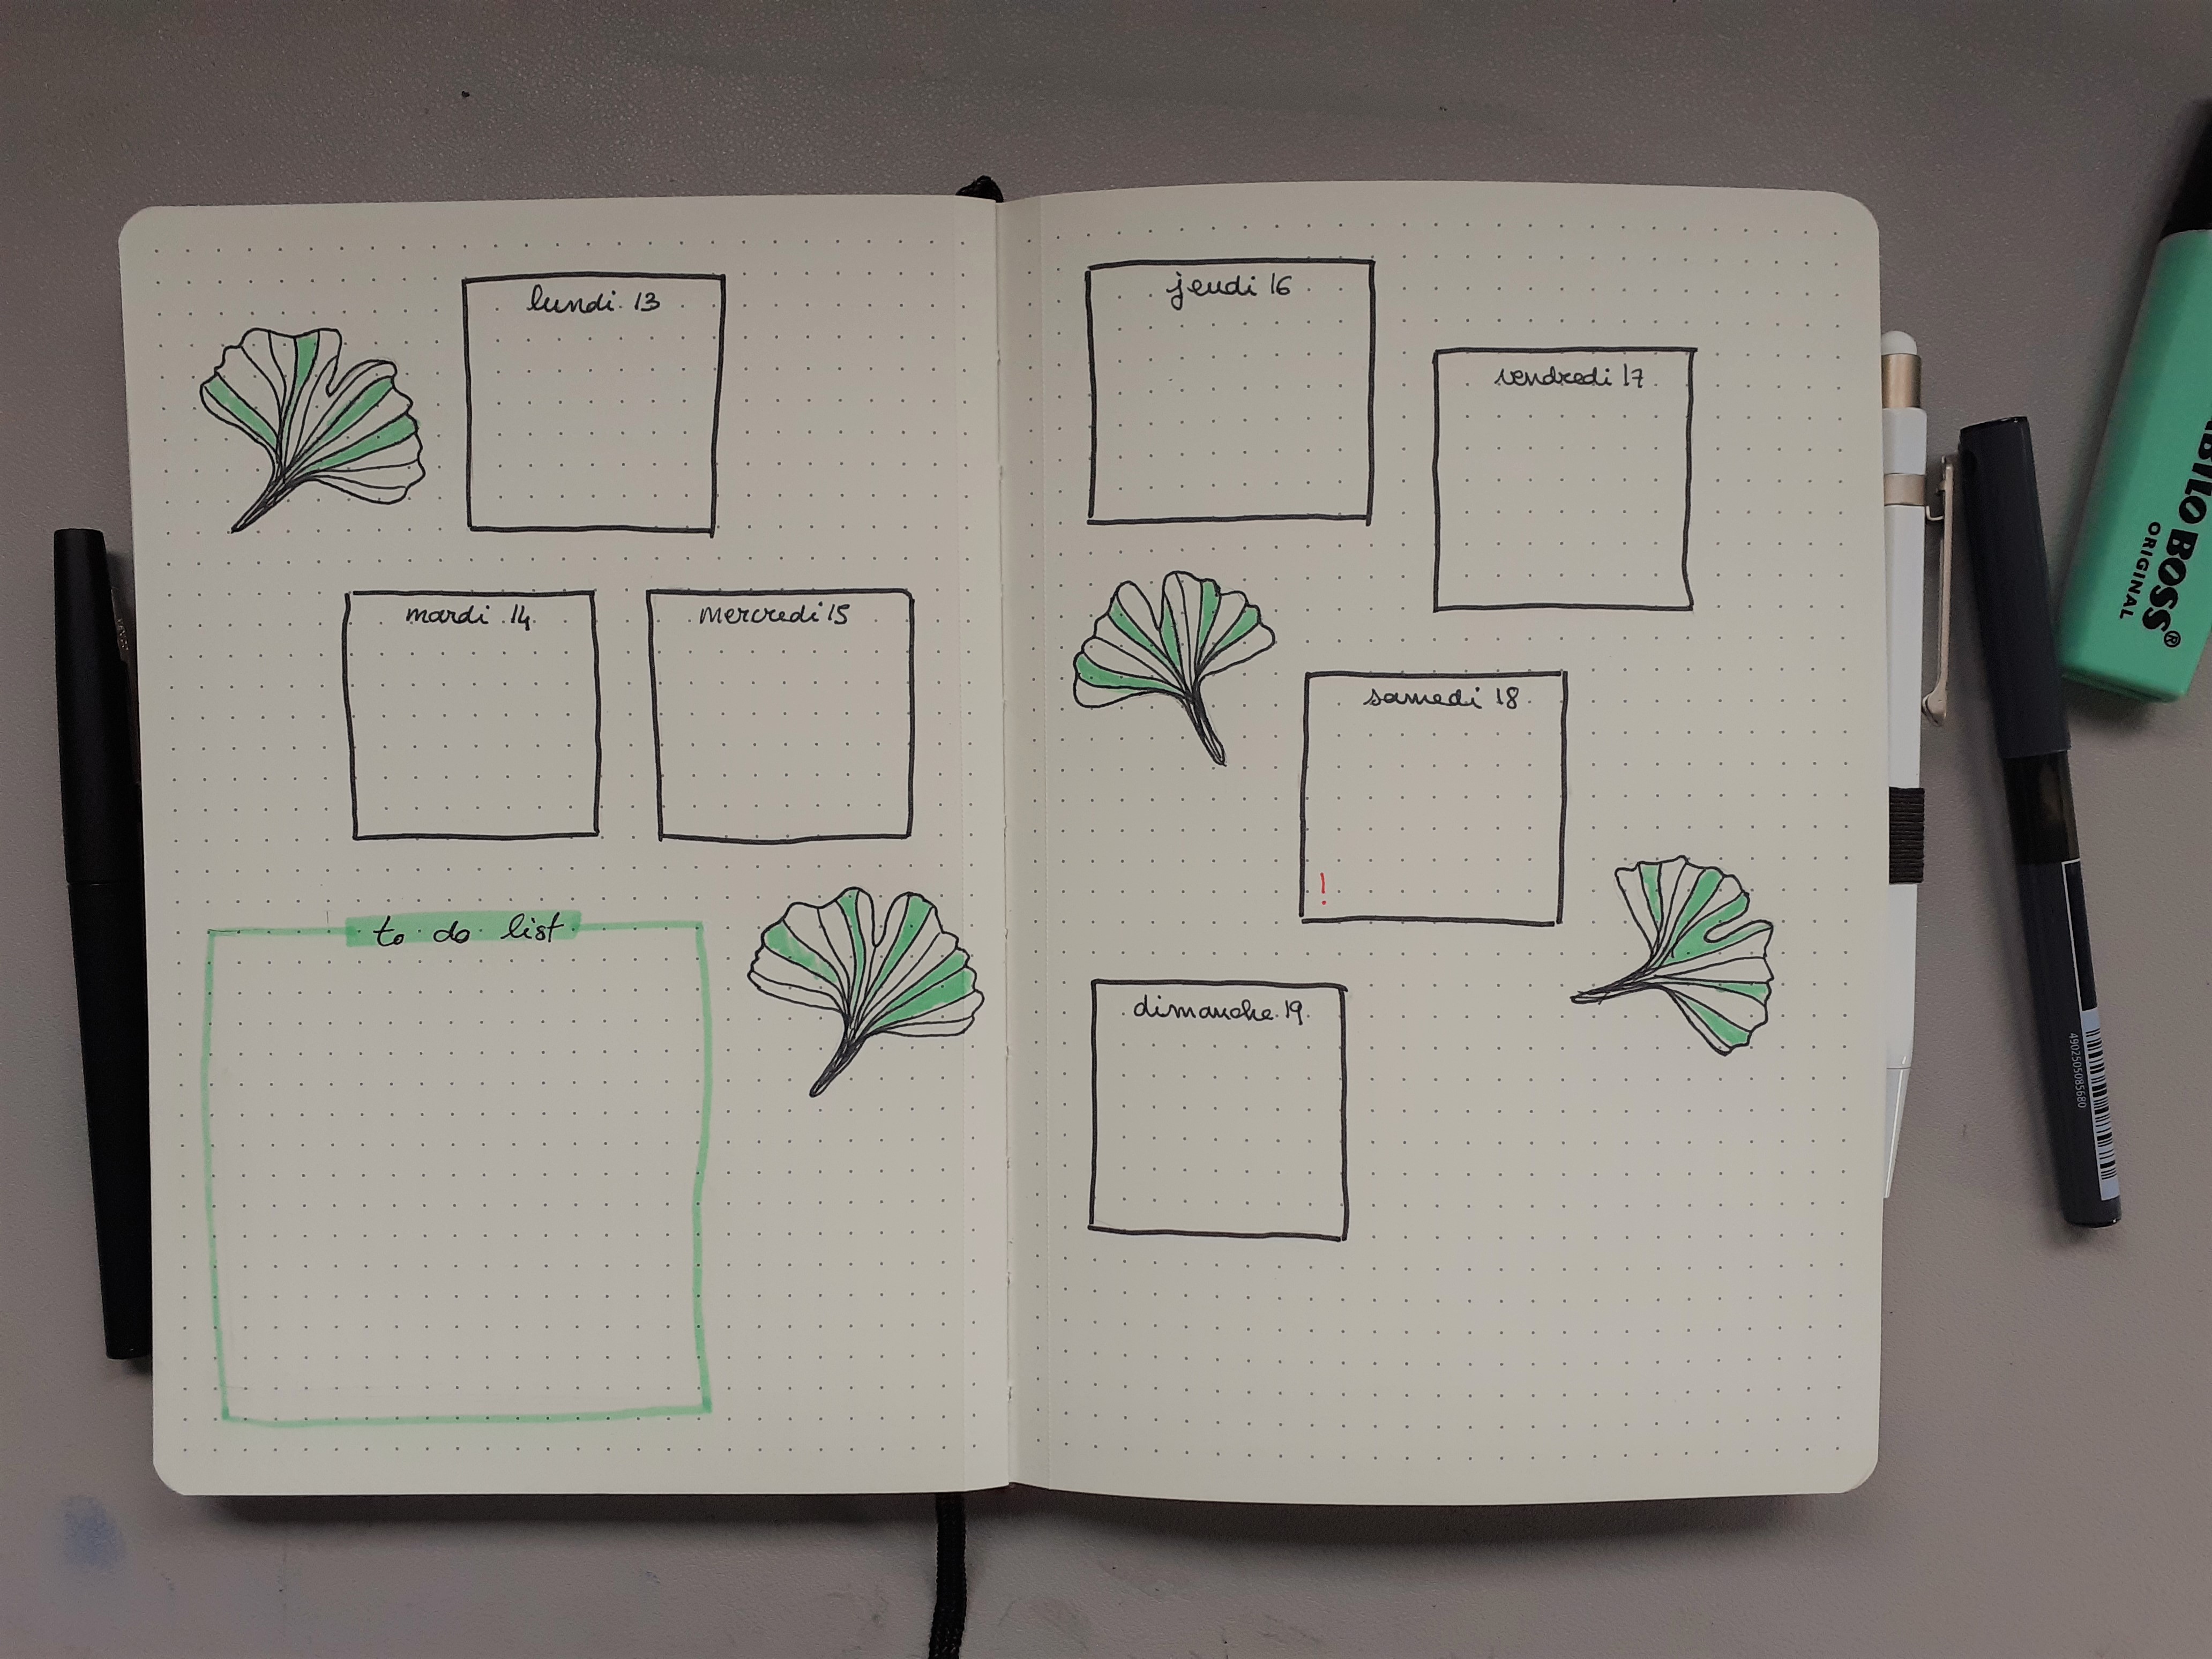 lundi 13
mardi 14
mercredi 15
to do list
jeudi 16
vendredi 17
samedi 18
!
dimanche 19
BOSS®
ORIGINAL
4902505085680